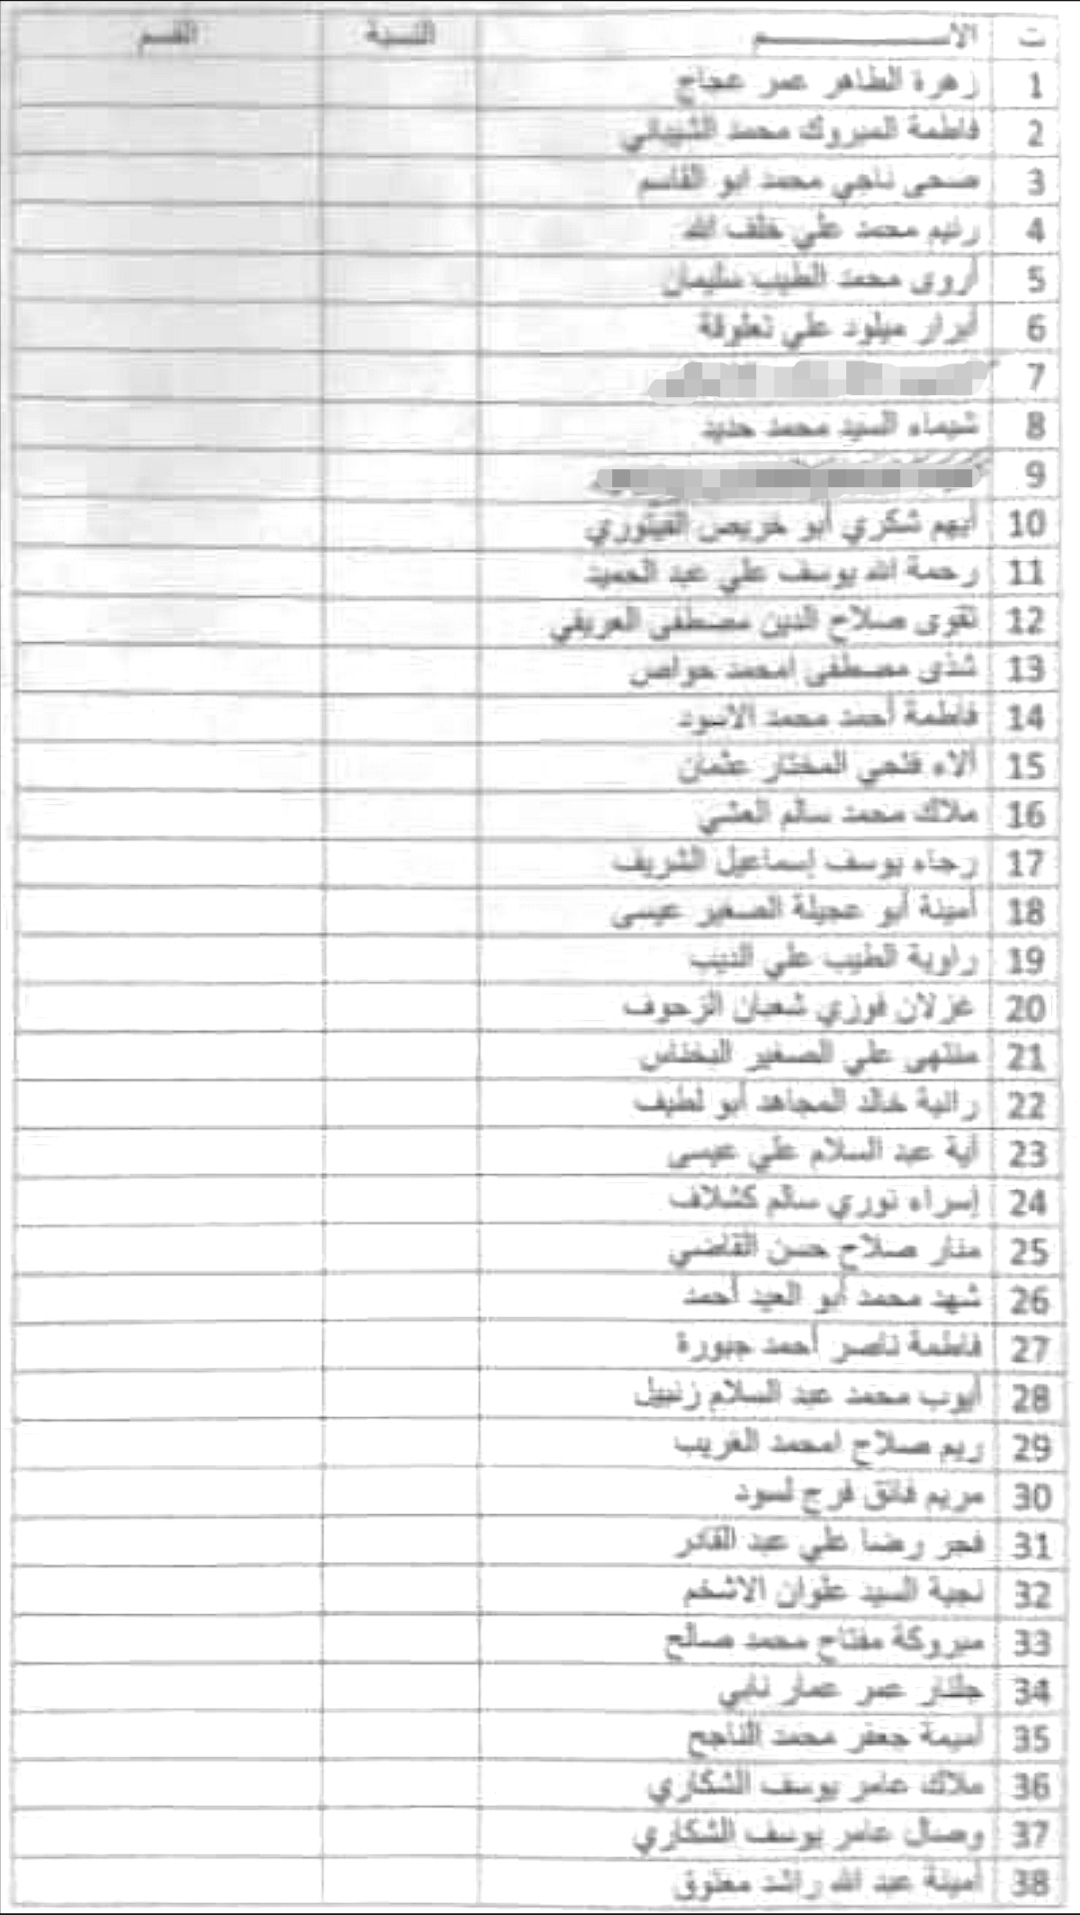 ت الاســـــــــــم النسبة القسم
1 زهرة الطاهر عمر عجاج
2 فاطمة المبروك محمد الشيباني
3 ضحى ناجي محمد ابو القاسم
4 رنيم محمد علي خلف الله
5 أروى محمد الطيب سليمان
6 أبرار ميلود علي
7
8 شيماء السيد محمد حديد
9
10 أيهم شكري أبو خريص الفيتوري
11 رحمة الله يوسف علي عبد الحميد
12 تقوى صلاح الدين مصطفى
13 شذى مصطفى امحمد حواص
14 فاطمة أحمد محمد الاسود
15 ألاء فتحي المختار عثمان
16 ملاك محمد سالم
17 رجاء يوسف إسماعيل الشريف
18 أمينة أبو عجيلة الصغير عيسى
19 راوية الطيب علي
20 غزلان فوزي شعبان الزحوف
21 منتهى علي الصغير
22 رانية خالد المجاهد أبو لطيف
23 أية عبد السلام علي عيسى
24 إسراء نوري سالم كشلاف
25 منار صلاح حسن القاضي
26 شهد محمد أبو العيد أحمد
27 فاطمة ناصر أحمد جبورة
28 أيوب محمد عبد السلام زنبيل
29 ريم صلاح امحمد الغريب
30 مريم فائق فرج لسود
31 فجر رضا علي عبد القادر
32 نجية السيد علوان الاشخم
33 مبروكة مفتاح محمد صالح
34 جلنار عمر عمار نابي
35 أميمة جعفر محمد الناجح
36 ملاك عامر يوسف الشكاري
37 وصال عامر يوسف الشكاري
38 أمينة عبد الله راشد معتوق